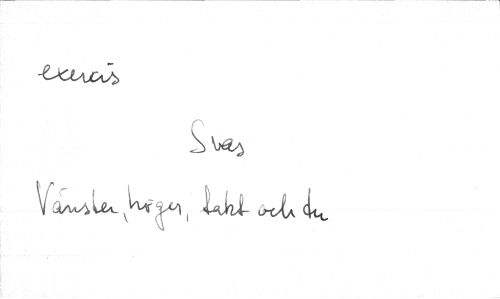 exercis
Svas
Vänster, höger, takt och tu